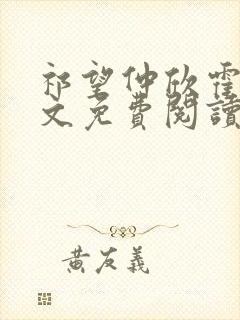 祁望仲欣霍
文免費閱讀
黃友義